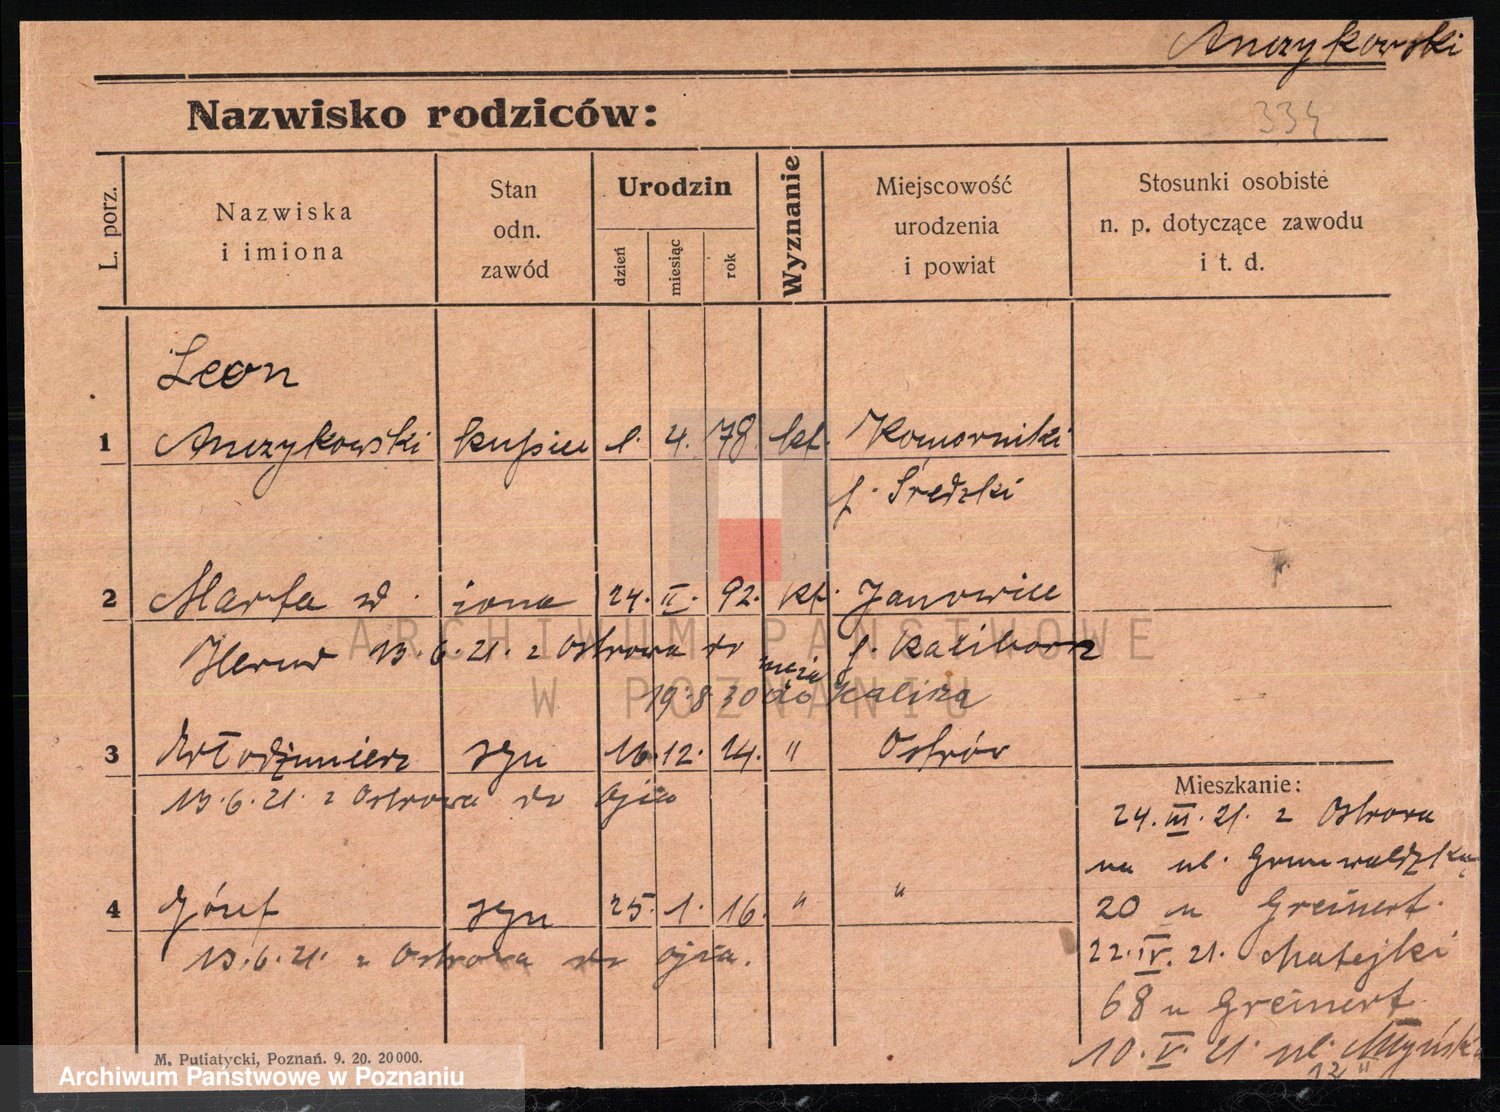 Anczykowski
Nazwisko rodziców:
334
L. porz.
Nazwiska
i imiona
Stan
odn.
zawód
Urodzin
dzień
miesiąc
rok
Wyznanie
Miejscowość
urodzenia
i powiat
Stosunki osobiste
n. p. dotyczące zawodu
i t. d.
Leon
1 Anczykowski kupiec 1. 4. 78. kt. Komorniki
p. Średzki
2 Marta żona 24. II. 92. kt. Janowice
13.6.21. z Ostrowa do męża
19.8.30 do Kalisza
3 Włodzimierz syn 16. 12. 14. " Ostrów
13.6.21. z Ostrowa do ojca
4 Józef syn 25. 1. 16. " "
13.6.21. z Ostrowa do ojca.
Mieszkanie:
24. III. 21. z Ostrowa
na ul. Grunwaldzką
20 u Greinert.
22. IV. 21. Matejki
68 u Greinert
10. V. 21. ul. Młyńska
12 "
M. Putiatycki, Poznań. 9. 20. 20000.
ARCHIWUM PAŃSTWOWE
W POZNANIU
Archiwum Państwowe w Poznaniu